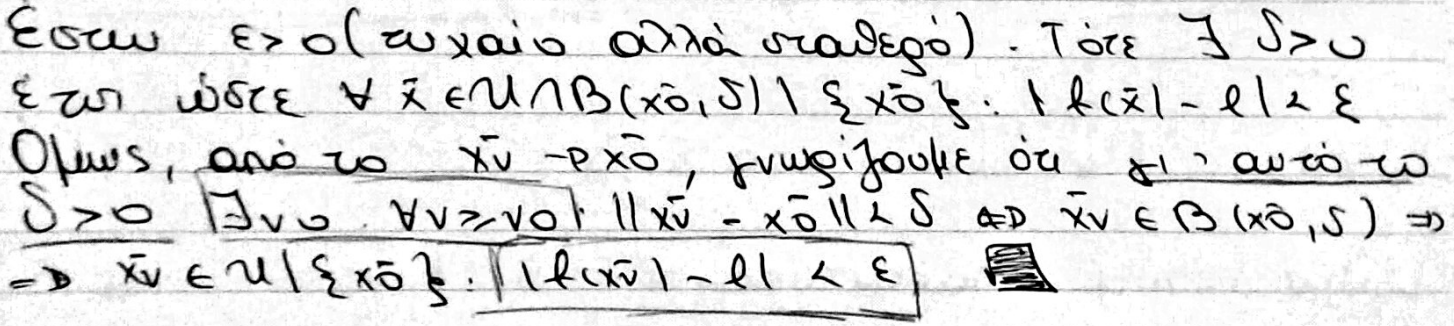 Έστω ε>0 (τυχαίο αλλά σταθερό). Τότε ∃ δ>0
έτσι ώστε ∀ x̄ ∈ U ∩ B(x̄₀, δ) \ {x̄₀}: |f(x̄) - l| < ε
Όμως, από το x̄ν → x̄₀, γνωρίζουμε ότι γι' αυτό το
δ>0 ∃ν₀ ∀ν≥ν₀: ||x̄ν - x̄₀|| < δ ⇔ x̄ν ∈ B(x̄₀, δ) ⇒
⇒ x̄ν ∈ U \ {x̄₀}: |f(x̄ν) - l| < ε